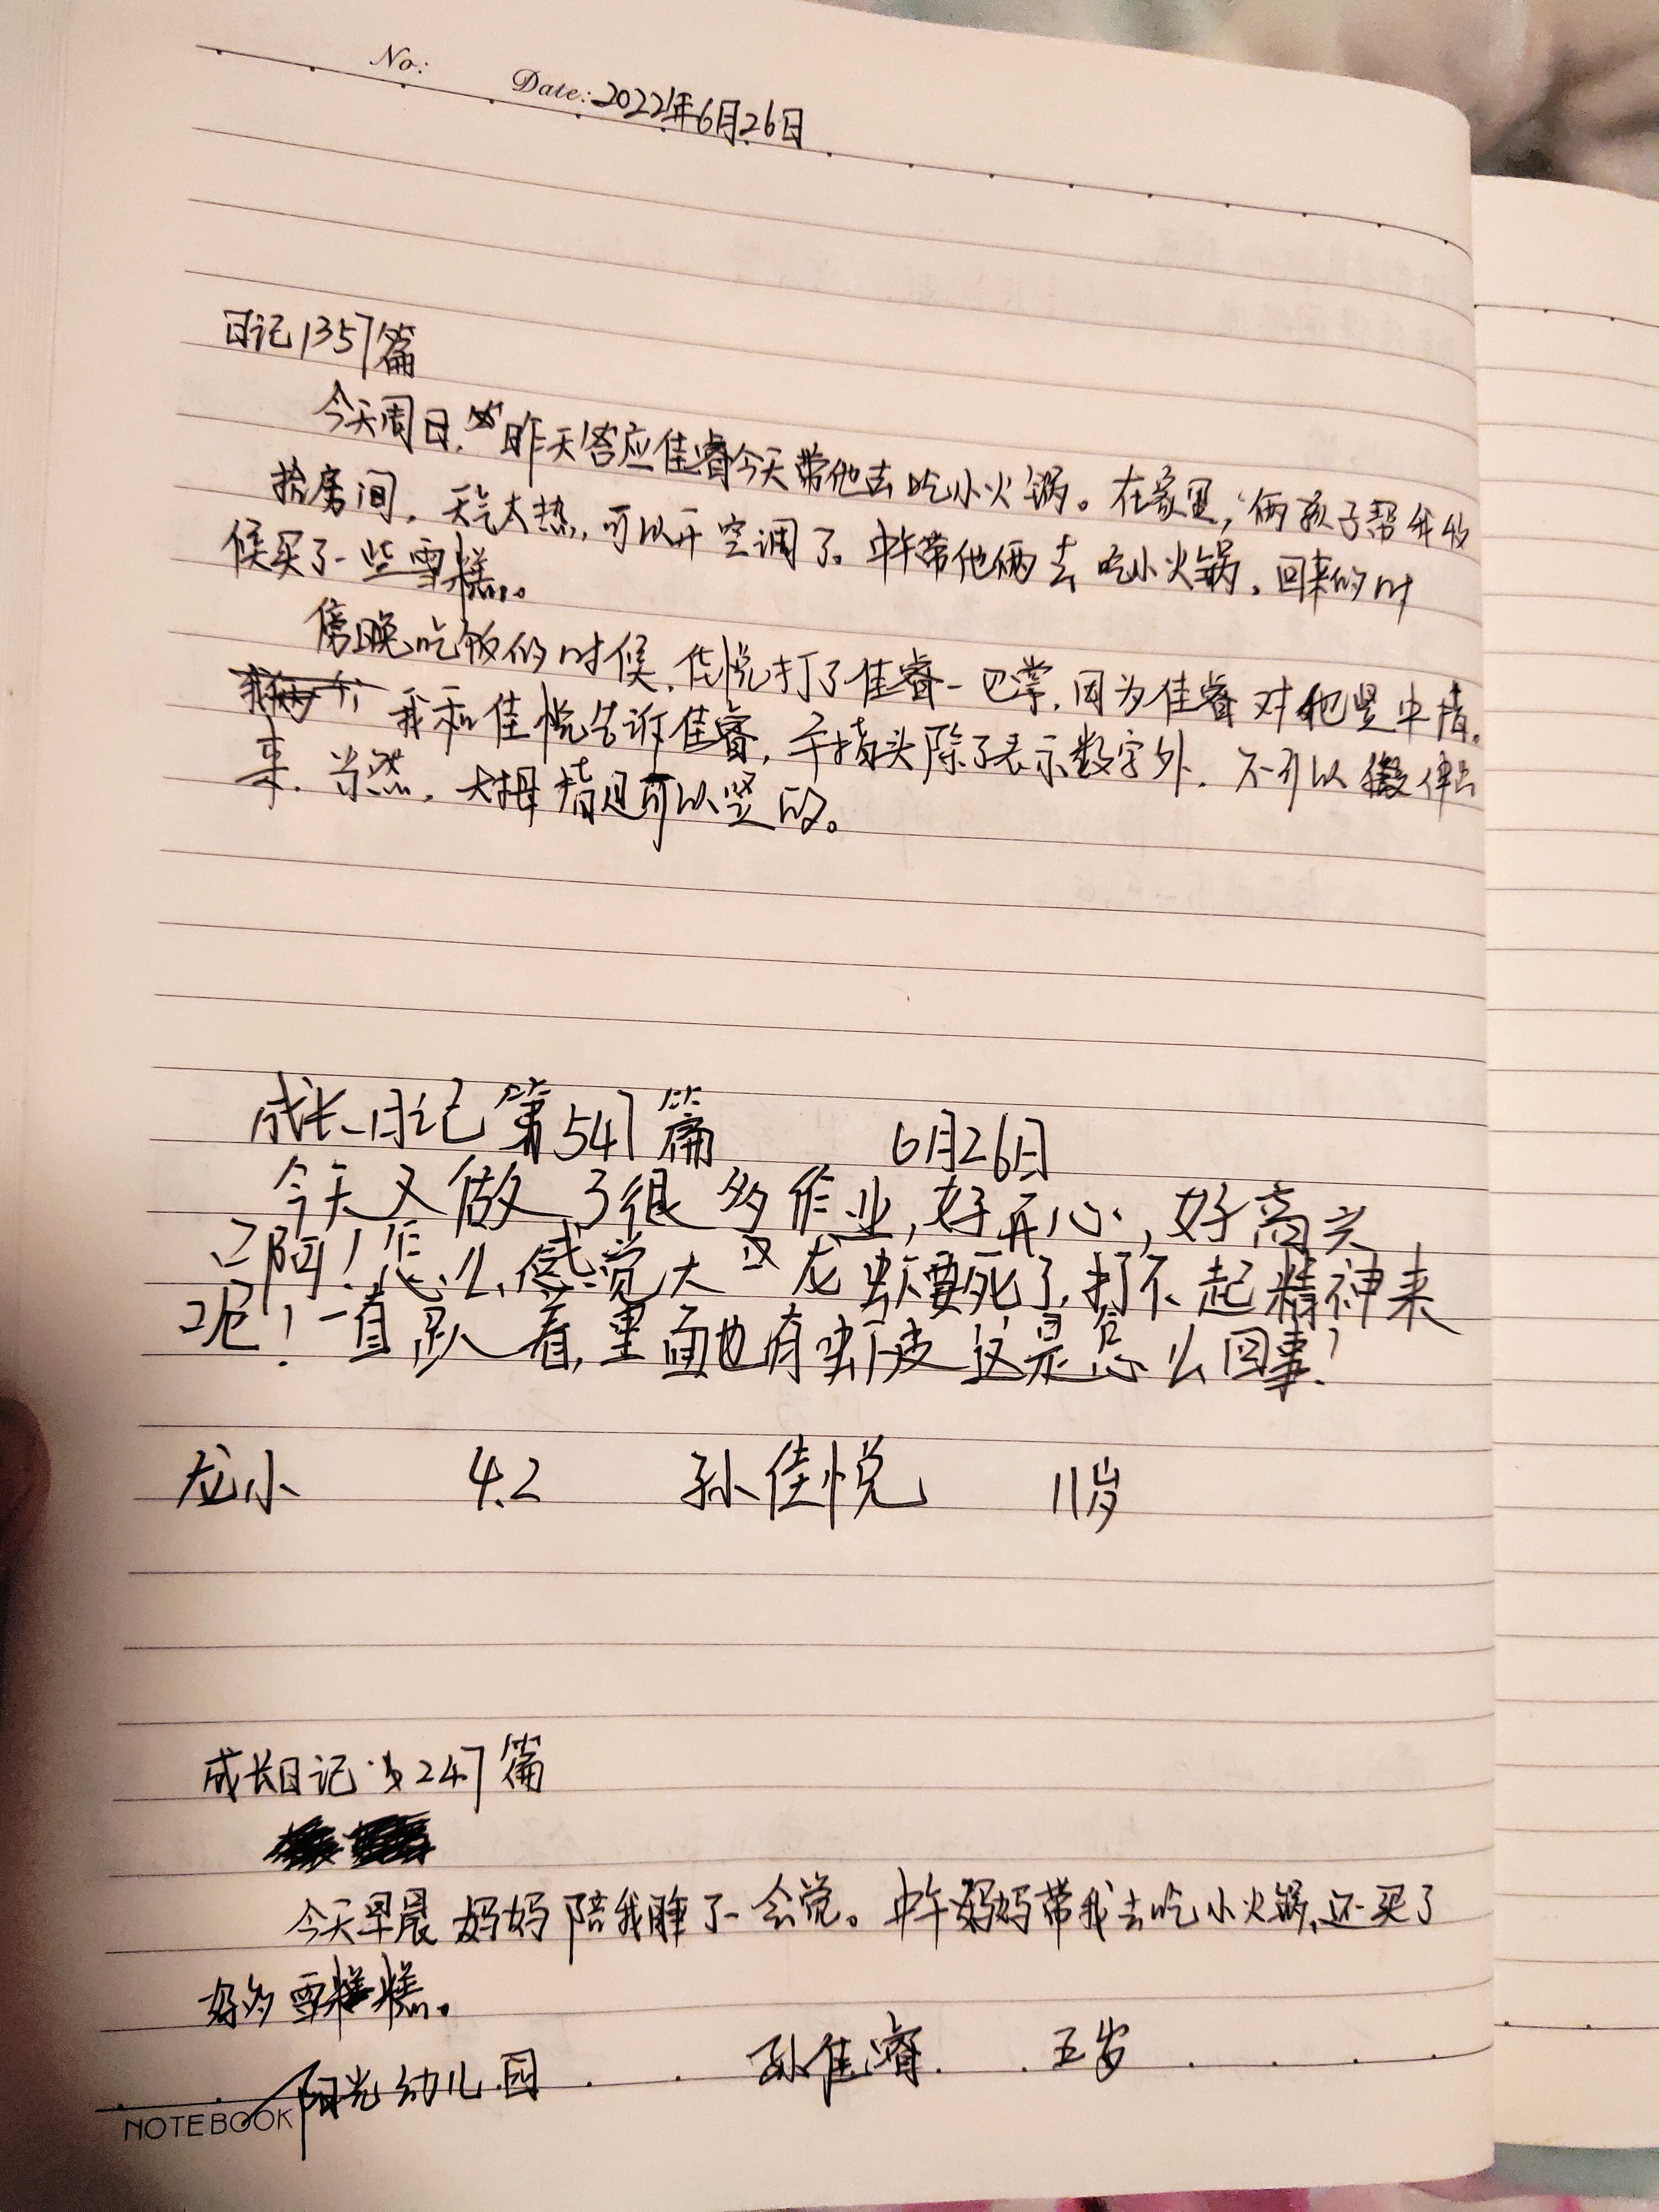 No:
Date: 2022年6月26日
日记1357篇
今天周日,昨天答应佳睿今天带他去吃小火锅。在家里,俩孩子帮我收
拾房间,天气太热,可以开空调了。中午带他俩去吃小火锅,回来的时
候买了一些雪糕。
傍晚吃饭的时候,佳悦打了佳睿一巴掌,因为佳睿对他竖中指。
我和佳悦告诉佳睿,手指头除了表示数字外,不可以伸出
来,当然,大拇指是可以竖的。
成长日记第547篇 6月26日
今天又做了很多作业,好开心,好高兴
啊!怎么感觉大龙虾要死了,打不起精神来
呢!一直趴着,里面也有虾皮这是怎么回事?
龙小 4.2 孙佳悦 11岁
成长日记第247篇
今天早晨妈妈陪我睡了一会觉。中午妈妈带我去吃小火锅,还买了
好多雪糕。
阳光幼儿园 孙佳睿 五岁
NOTEBOOK